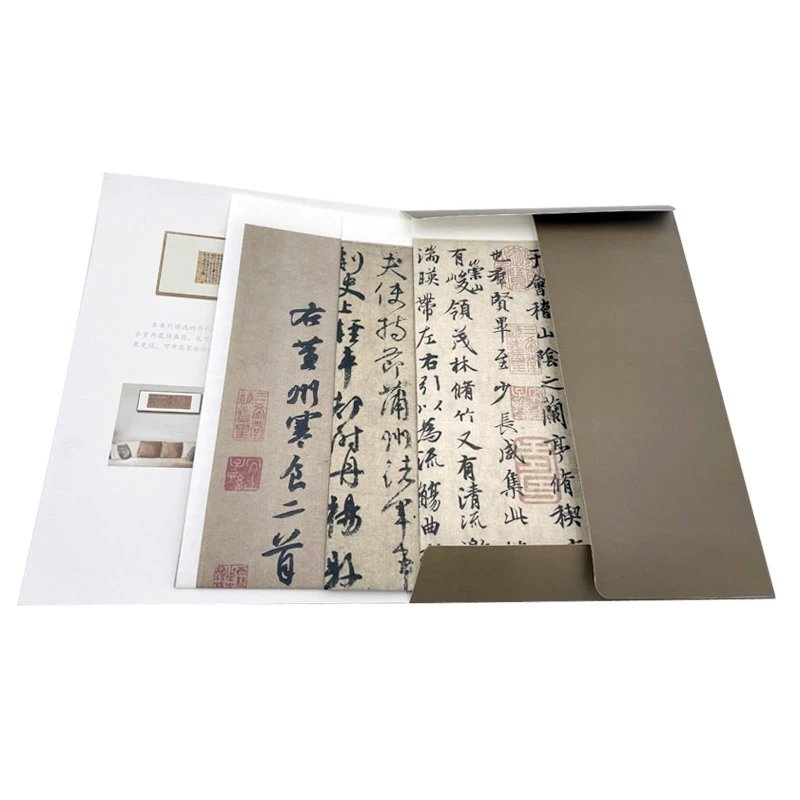 于會稽山陰之蘭亭脩稧
也羣賢畢至少長咸集此
有崇山峻領茂林脩竹又有清流激
湍暎帶左右引以為流觴曲
夫使持節蒲州諸軍
刺史上輕車都尉丹楊縣
右黄州寒食二首